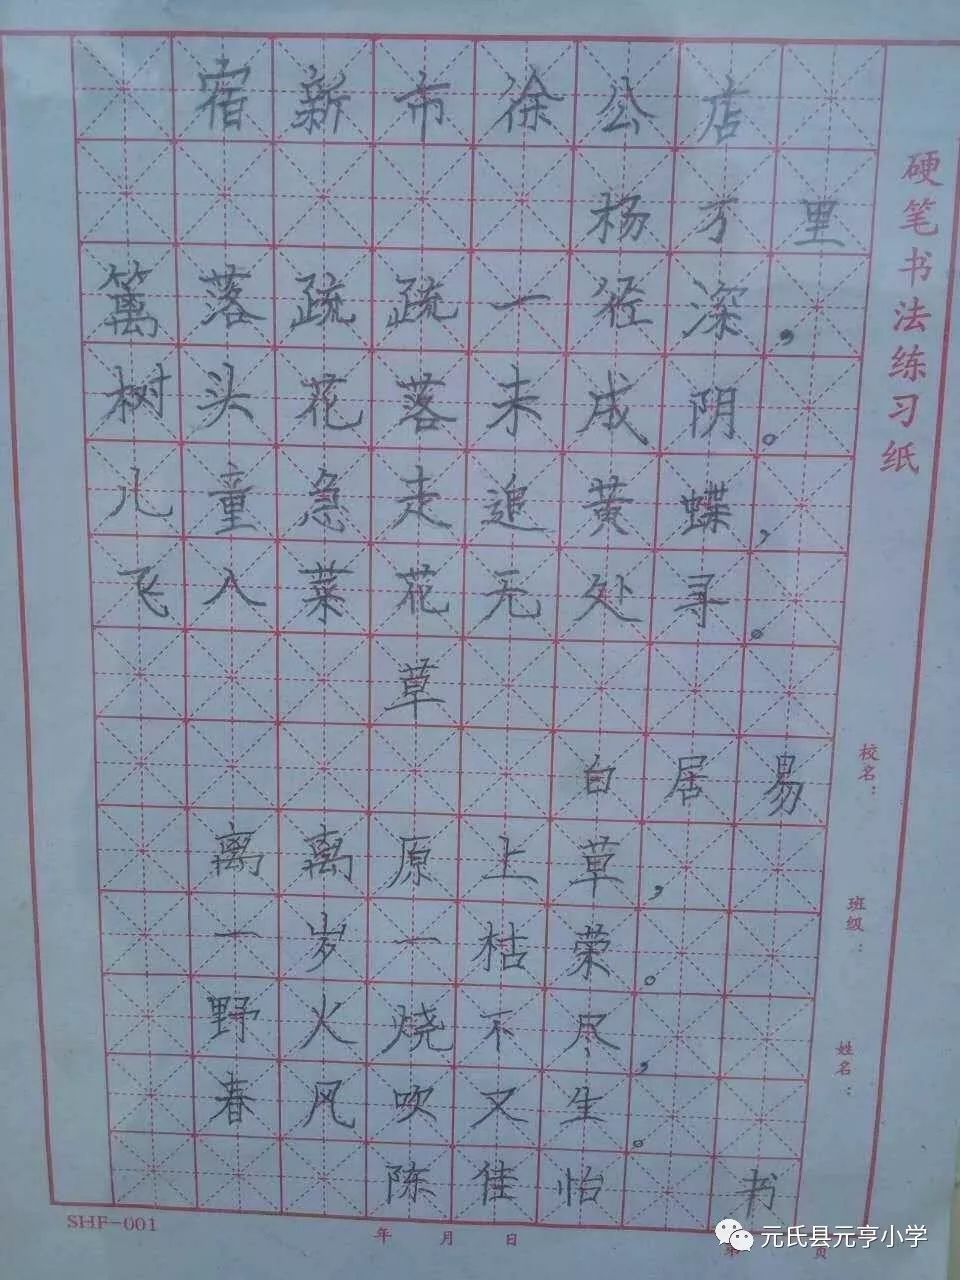 宿新市徐公店
杨万里
篱落疏疏一径深，
树头花落未成阴。
儿童急走追黄蝶，
飞入菜花无处寻。
草
白居易
离离原上草，
一岁一枯荣。
野火烧不尽，
春风吹又生。
陈佳怡 书
硬笔书法练习纸
校名：
班级：
姓名：
SHF-001
年 月 日
第 页
元氏县元亨小学